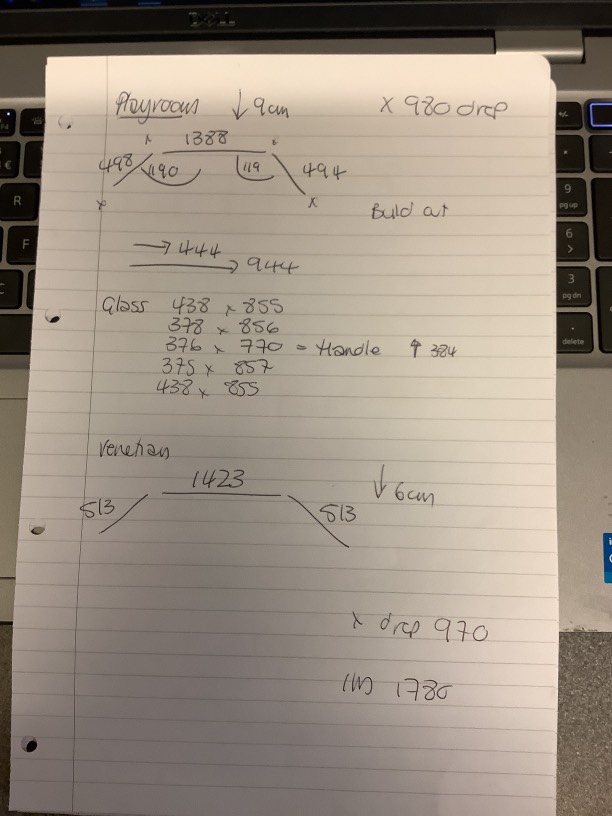 DELL
Playroom ↓ 9cm x 980 drop
x 1388 x
498 1190 119 494
x x
Build out
→ 444
→ 944
Glass 438 x 855
378 x 856
376 x 770 = Handle ↑ 384
375 x 857
438 x 855
Venetian
1423 ↓ 6cm
513 513
x drop 970
1780
R
F
9
pg up
6
>
3
pg dn
.
delete
+/-